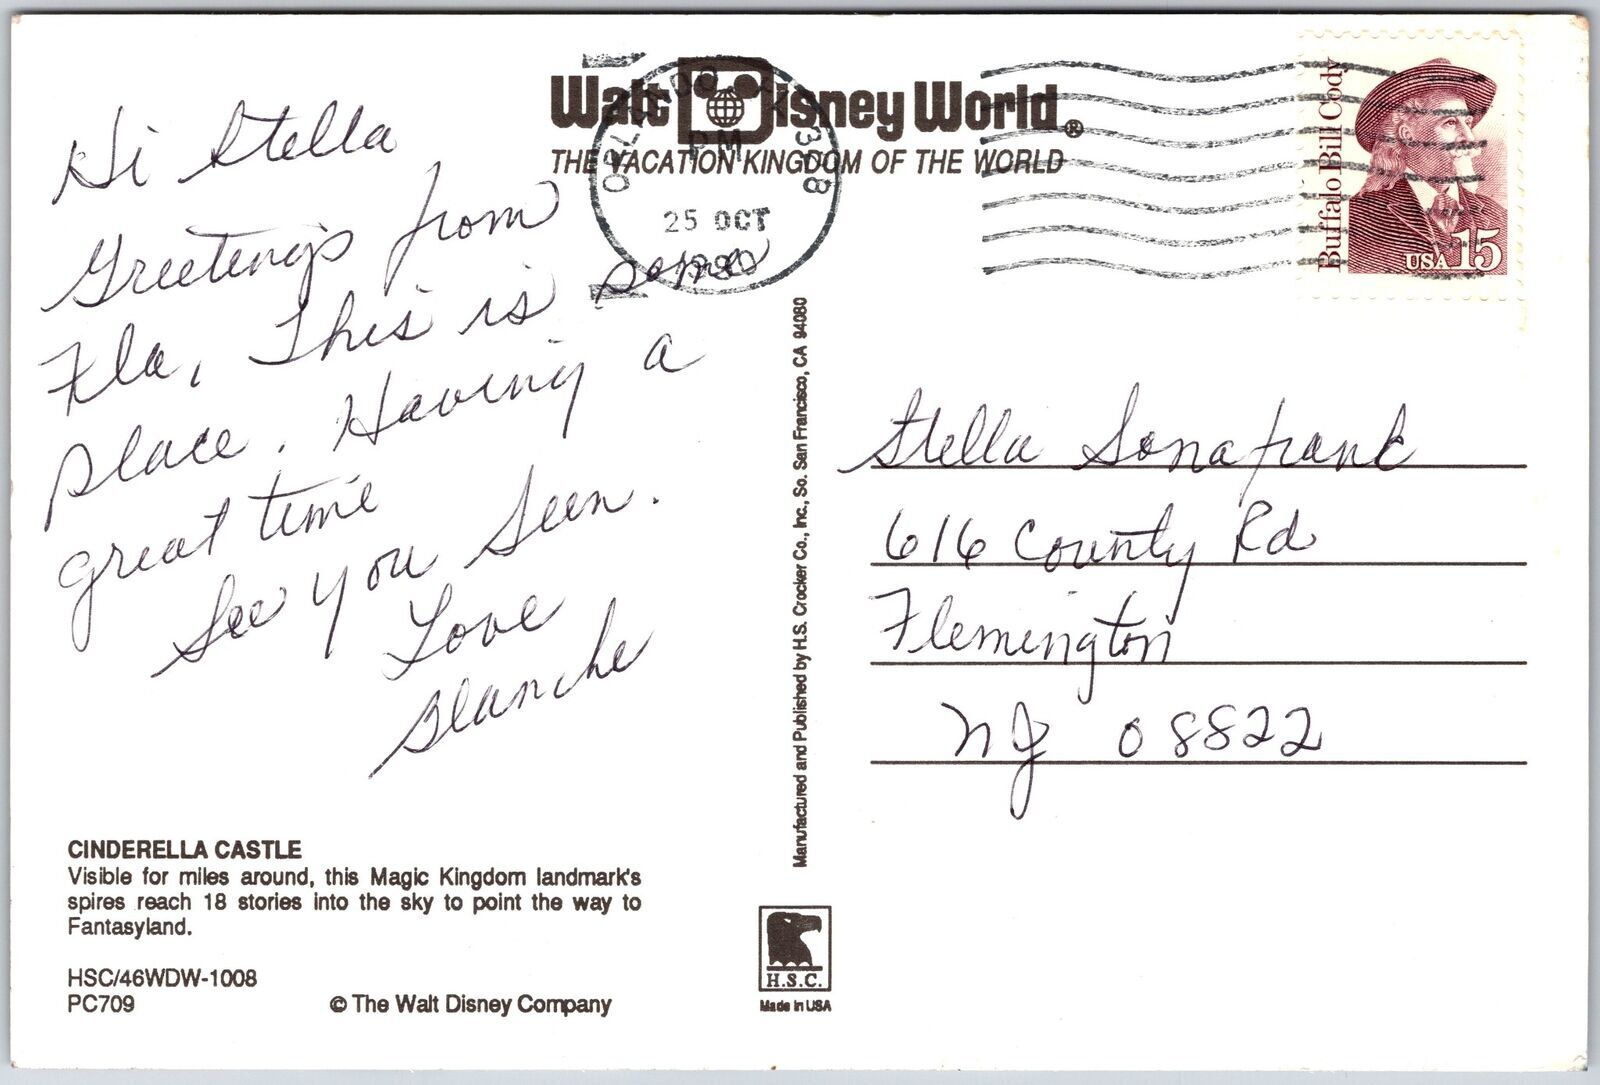 Walt Disney World®
THE VACATION KINGDOM OF THE WORLD
ORLANDO
328
PM
25 OCT
1990
Buffalo Bill Cody
USA 15
Hi Stella
Greetings from
Fla, This is some
place. Having a
great time
See you Seen.
Love
Blanche
Stella Sonafrank
616 County Rd
Flemington
NJ 08822
Manufactured and Published by H.S. Crocker Co., Inc., So. San Francisco, CA 94080
CINDERELLA CASTLE
Visible for miles around, this Magic Kingdom landmark's
spires reach 18 stories into the sky to point the way to
Fantasyland.
HSC/46WDW-1008
PC709 © The Walt Disney Company
H.S.C.
Made in USA